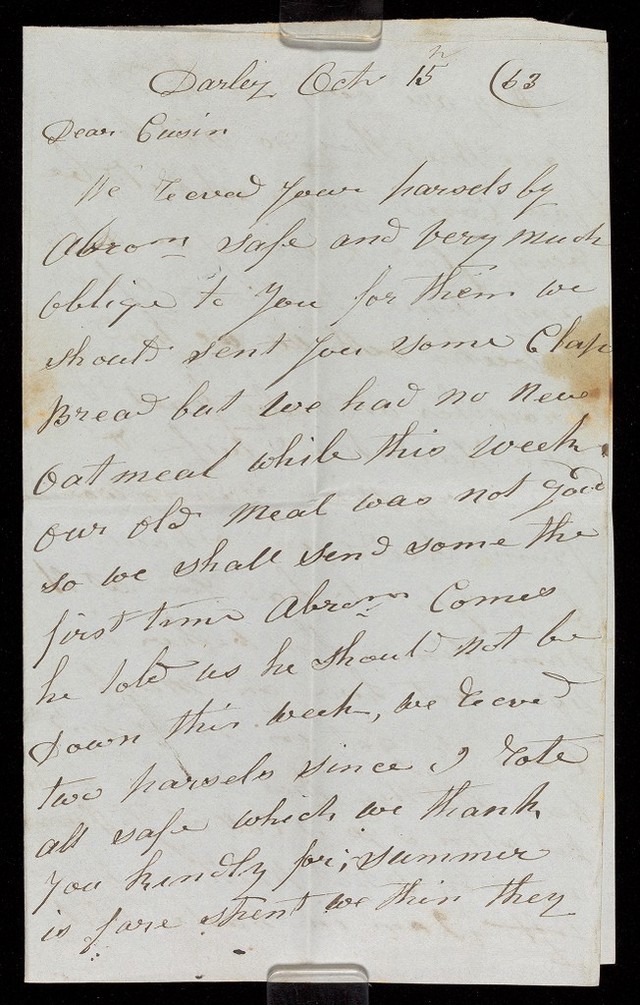 Darley Oct 15th (63
Dear Cusin
We receved your parsels by
Abrom safe and very much
oblige to you for them we
should sent you some Clap
Bread but we had no new
oatmeal while this week
our old meal was not good
so we shall send some the
first time Abrom Comes
he told us he should not be
down this week, we receved
two parsels since I rote
all safe which we thank
you kindly for; summer
is fare spent we thin they